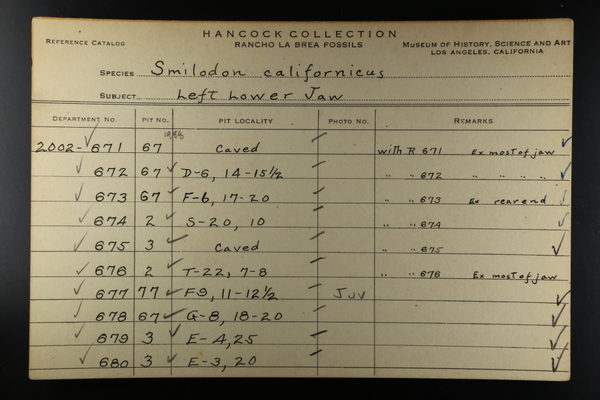 HANCOCK COLLECTION
REFERENCE CATALOG RANCHO LA BREA FOSSILS MUSEUM OF HISTORY, SCIENCE AND ART
LOS ANGELES, CALIFORNIA
SPECIES Smilodon californicus
SUBJECT Left Lower Jaw
DEPARTMENT NO. PIT NO. PIT LOCALITY PHOTO NO. REMARKS
2002-671 67 Caved with R 671 Ex most of jaw
672 67 D-6, 14-15½ " " 672 " " " "
673 67 F-6, 17-20 " " 673 Ex rear end
674 2 S-20, 10 " " 674
675 3 Caved " " 675
676 2 T-22, 7-8 " " 676 Ex most of jaw
677 77 F9, 11-12½ Juv
678 67 G-8, 18-20
679 3 E-4, 25
680 3 E-3, 20